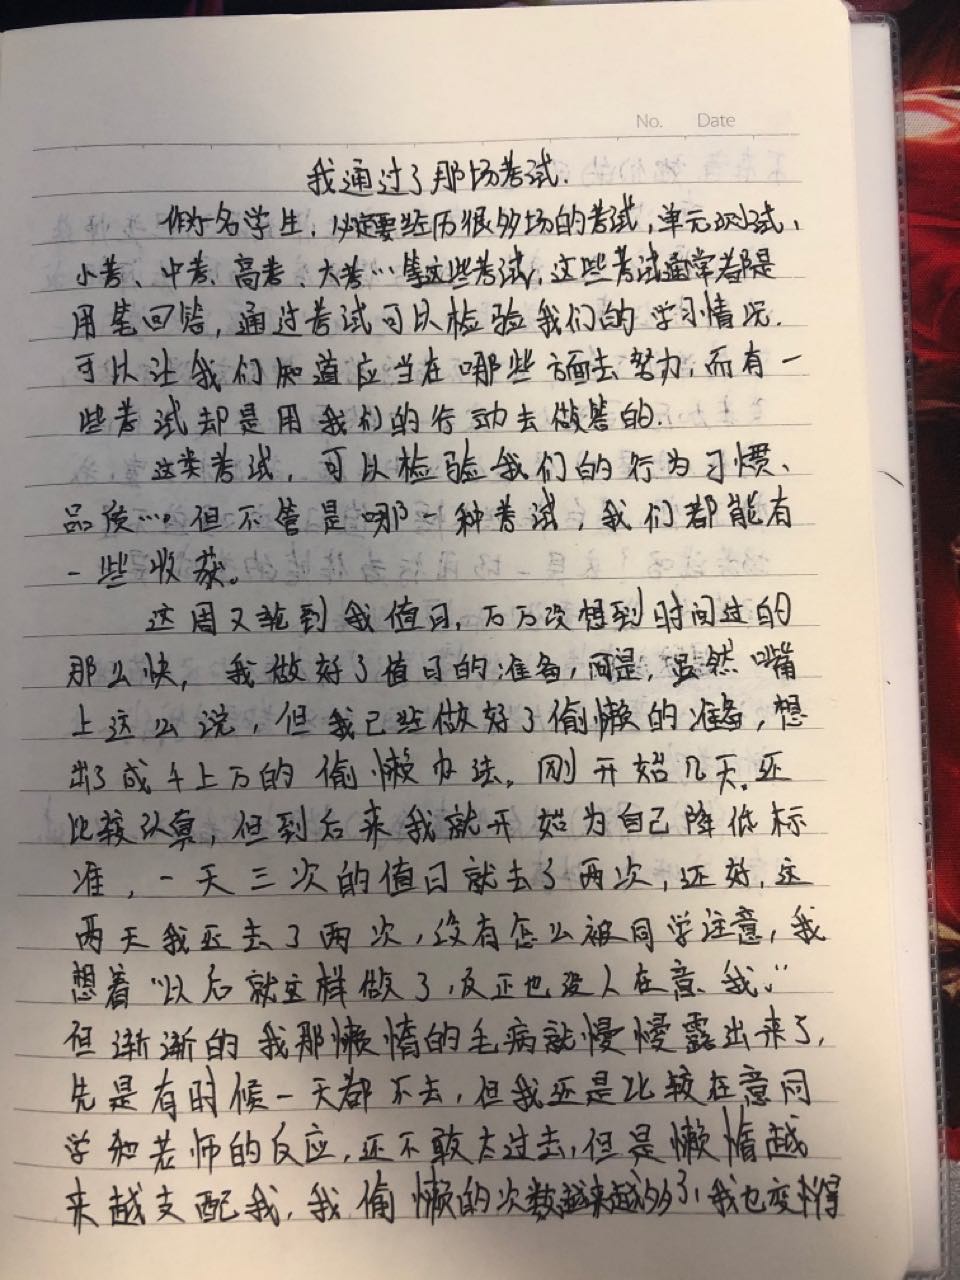 No. Date
我通过了那场考试.
作为一名学生，必定要经历很多场的考试，单元测试、
小考、中考、高考、大考…等这些考试，这些考试通常都是
用笔回答，通过考试可以检验我们的学习情况.
可以让我们知道应当在哪些方面去努力，而有一
些考试却是用我们的行动去做答的.
这类考试，可以检验我们的行为习惯、
品质…。但不管是哪一种考试，我们都能有
一些收获。
这周又轮到我值日，万万没想到时间过的
那么快，我做好了值日的准备，可是，虽然嘴
上这么说，但我已经做好了偷懒的准备，想
出了成千上万的偷懒办法。刚开始几天，还
比较认真，但到后来我就开始为自己降低标
准，一天三次的值日就去了两次，还好，这
两天我还去了两次，没有怎么被同学注意，我
想着“以后就这样做了，反正也没人在意我。”
但渐渐的我那懒惰的毛病就慢慢露出来了，
先是有时候一天都不去，但我还是比较在意同
学和老师的反应，还不敢太过去，但是懒惰越
来越支配我，我偷懒的次数越来越多了，我也变得